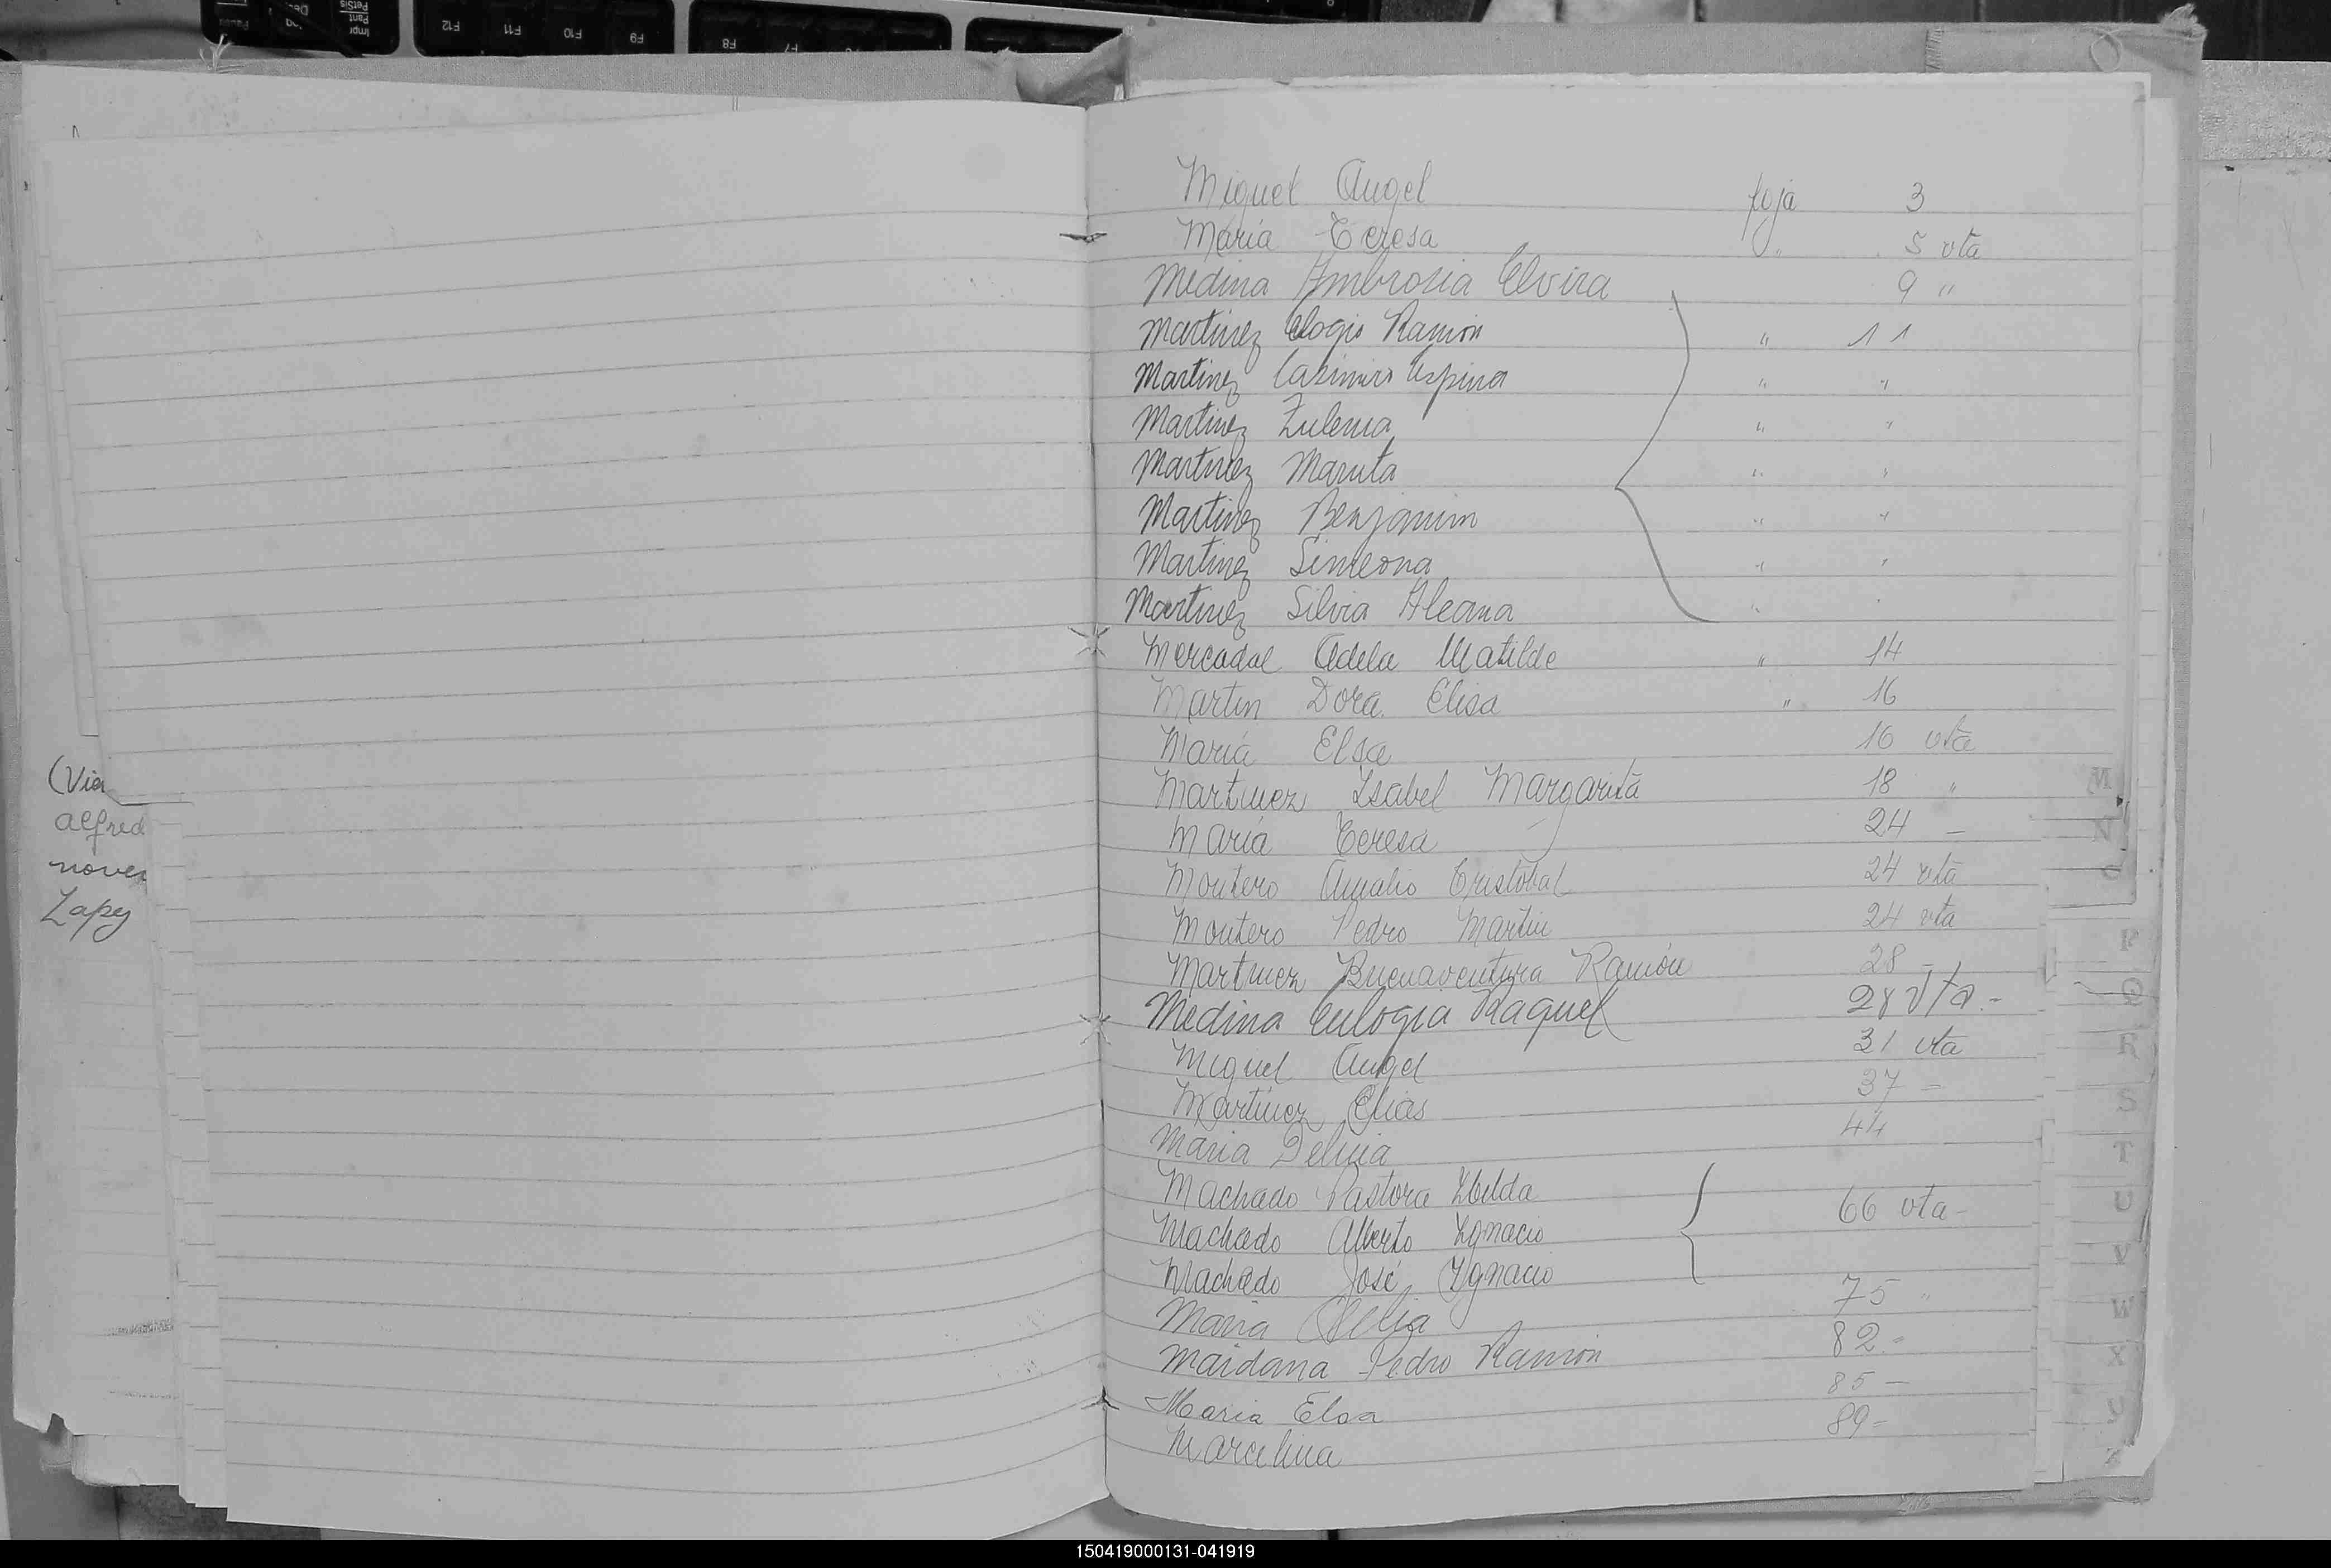 Impr
Pant
PetSis
F12
F11
F10
F9
F8
F7
(Vie
alfred
nove
Zapey
Miguel Angel foja 3
María Teresa " 5 vta
Medina Ambrosia Elvira 9 "
Martinez Elogio Ramón " 11
Martinez Casimiro Espina " "
Martinez Zulema " "
Martinez Maruta " "
Martinez Benjamin " "
Martinez Simeona " "
Martinez Silvia Aleana "
Mercadal Adela Matilde " 14
Martin Dora Elisa " 16
María Elsa 16 vta
Martinez Isabel Margarita 18 "
María Teresa 24 -
Montero Amalio Cristobal 24 vta
Montero Pedro Martin 24 vta
Martinez Buenaventura Ramón 28 -
Medina Eulogia Raquel 28 vta -
Miguel Angel 31 vta
Martínez Elias 37 =
Maria Delicia 44
Machado Pastora Ilda
Machado Alberto Ygnacio 66 vta -
Machado José Ygnacio
Maria Delia 75 "
Maidana Pedro Ramón 82 =
Maria Elsa 85 -
Marcelina 89 =
M
N
P
Q
R
S
T
U
V
W
X
150419000131-041919